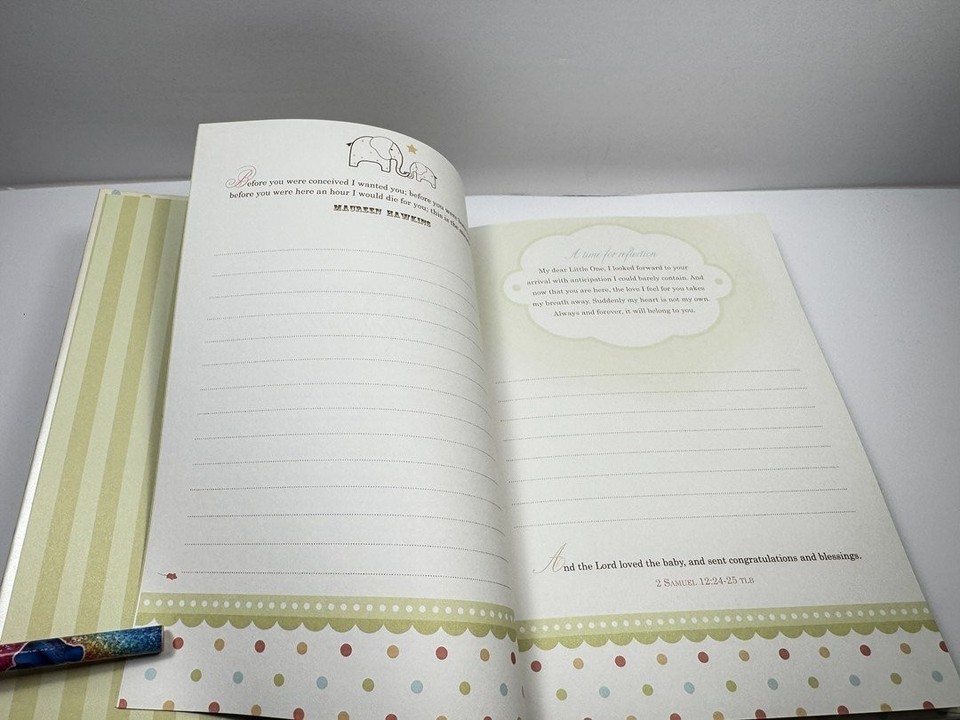 Before you were conceived I wanted you; before you were
before you were here an hour I would die for you; this is the
MAUREEN HAWKINS
A time for reflection
My dear Little One, I looked forward to your
arrival with anticipation I could barely contain. And
now that you are here, the love I feel for you takes
my breath away. Suddenly my heart is not my own.
Always and forever, it will belong to you.
And the Lord loved the baby, and sent congratulations and blessings.
2 SAMUEL 12:24-25 TLB